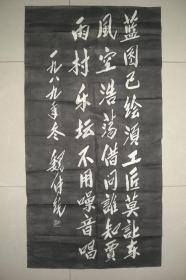 蓝图已绘须工匠莫让东
风空浩荡借问谁知贾
雨村乐坛不用噪音唱
一九八九年冬 魏传统